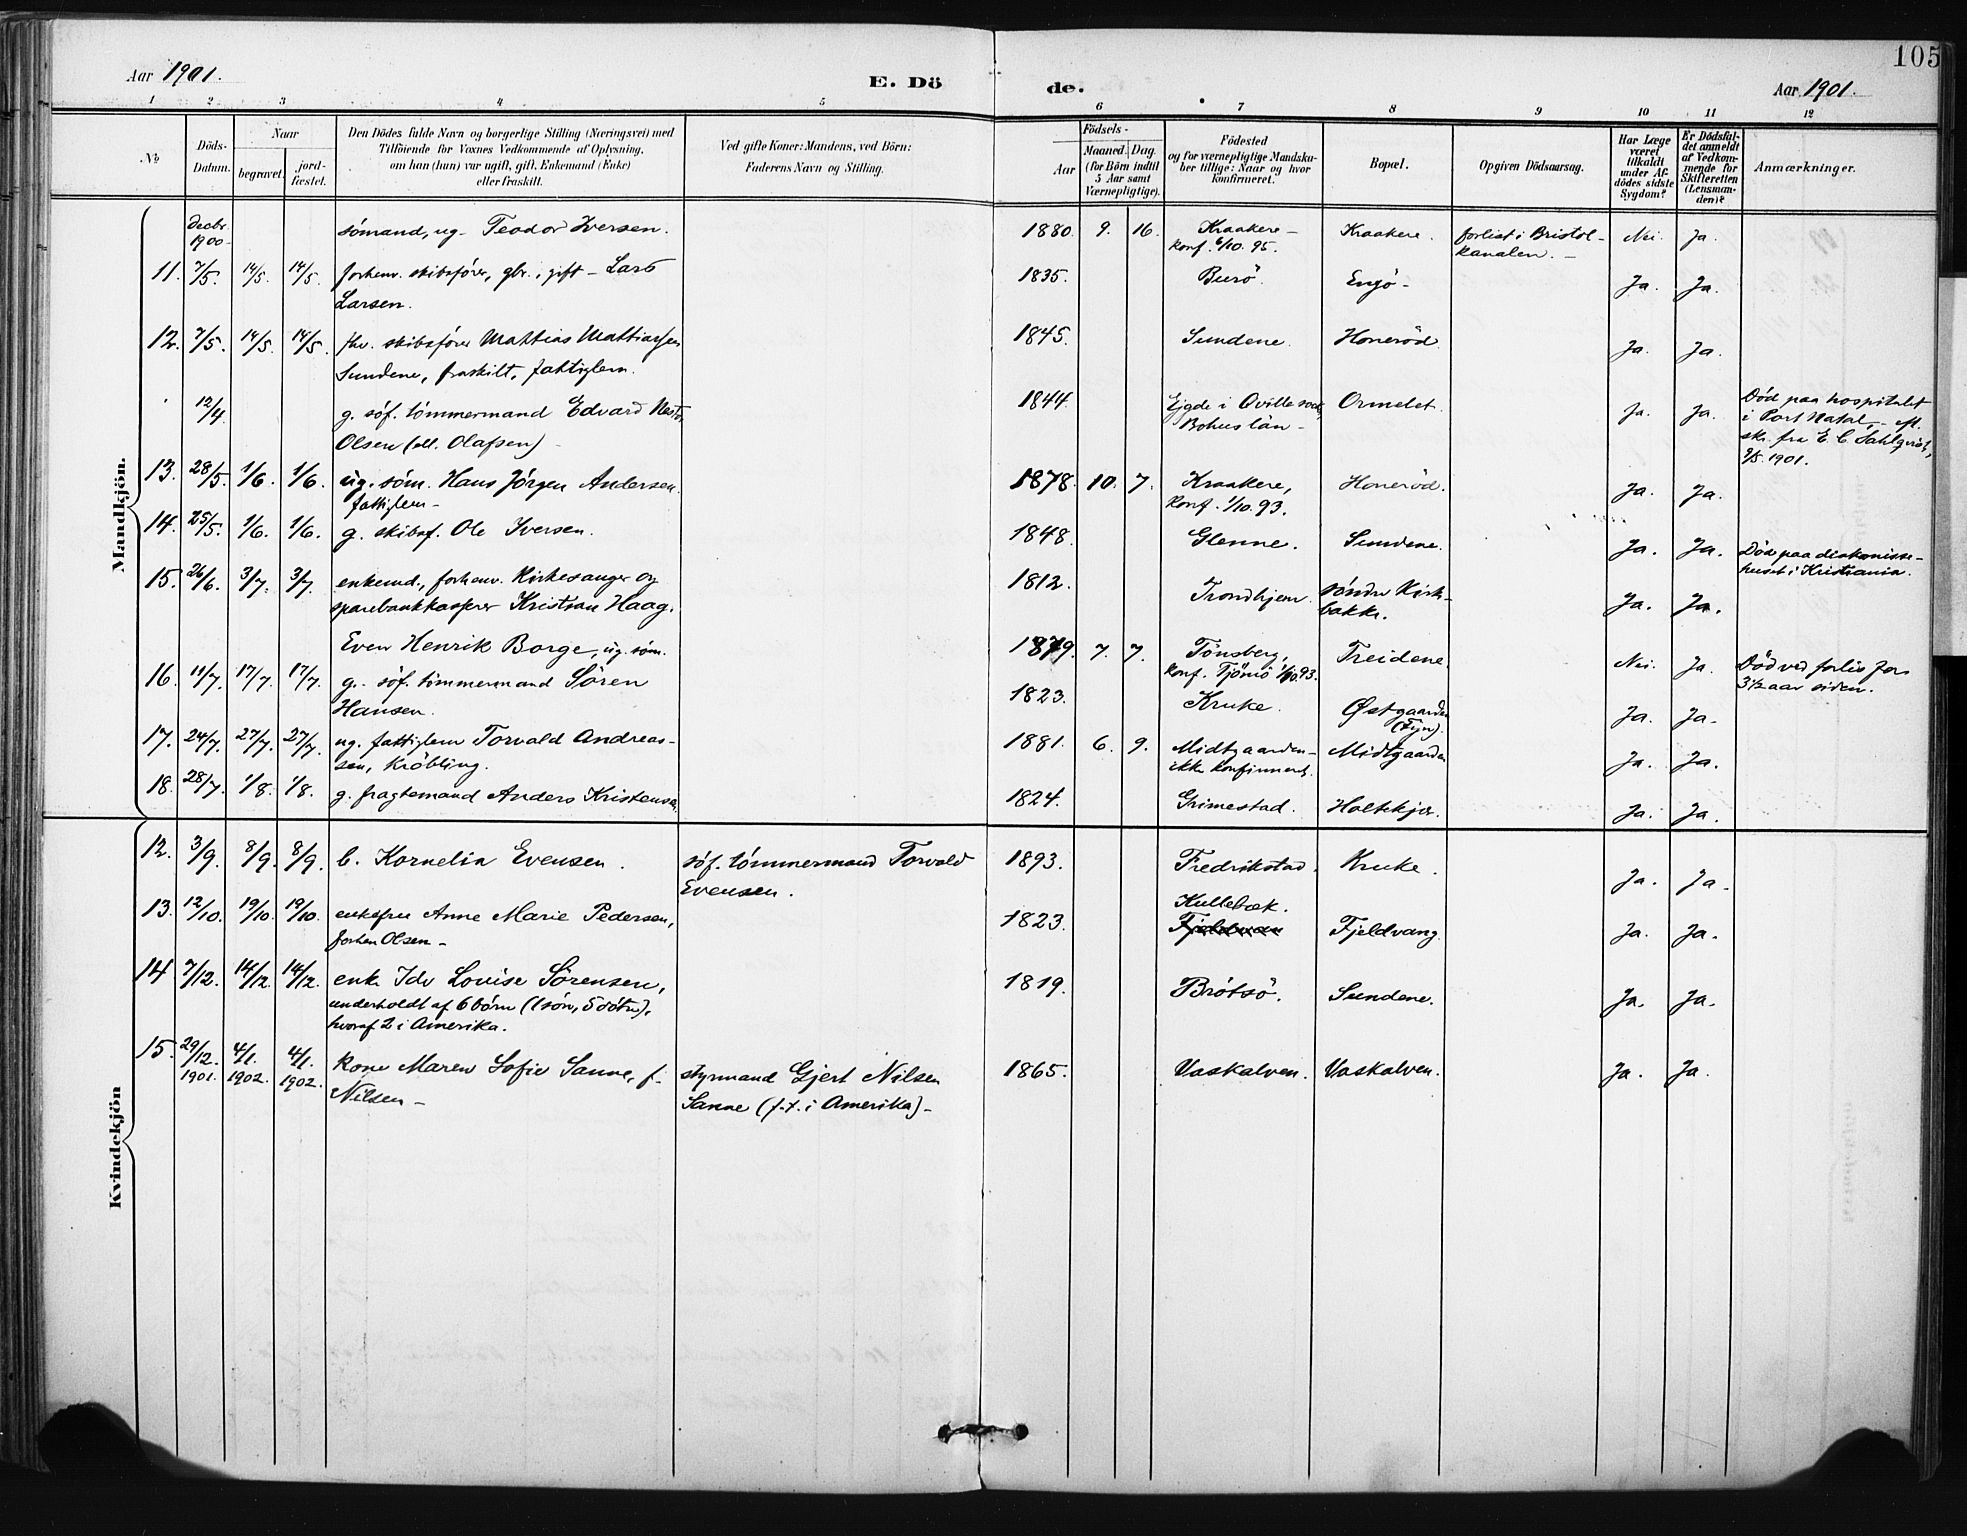 105
Aar 1901.
E. Dö
de.
Aar 1901.
1 2 3 4 5 6 7 8 9 10 11 12
No
Döds-
Datum.
Naar
begravet.
jord-
fæstet.
Den Dödes fulde Navn og borgerlige Stilling (Næringsvei) med
Tilföiende for Voxnes Vedkommende af Oplysning,
om han (hun) var ugift, gift, Enkemand (Enke)
eller fraskilt.
Ved gifte Koner: Mandens, ved Börn:
Faderens Navn og Stilling.
Födsels-
Aar
Maaned. Dag.
(for Börn indtil
5 Aar samt
Værnepligtige).
Födested
og for værnepligtige Mandska-
ber tillige: Naar og hvor
konfirmeret.
Bopæl.
Opgiven Dödsaarsag.
Har Læge
været
tilkaldt
under Af-
dödes sidste
Sygdom?
Er Dödsfal-
det anmeldt
af Vedkom-
mende for
Skifteretten
(Lensman-
den)?
Anmærkninger.
Mandkjön.
Decbr.
1900-
sömand, ug. Teodor Iversen.
1880. 9. 16. Kraakere - Kraakere. forlist i Bristol- Nei. Ja.
konf. 6/10. 95. kanalen. -
11. 7/5. 14/5. 14/5. forhenv. skibsförer, gbr., gift - Lars 1835. Burö. Engö - Ja. Ja.
Larsen.
12. 7/5. 14/5. 14/5. fhv. skibsförer Mattias Mattiassen 1845. Sundene. Honeröd. Ja. Ja.
Sundene, fraskilt, fattiglem.
12/4. g. söf. tömmermand Edvard 1844. i Qville sock, Ormelet. Ja. Ja. Död paa hospitalet
Olsen (ell. Olafsen) - Bohuslän - i Port Natal, - eft.
skr. fra E. C. Sahlqvist,
9/5. 1901.
13. 28/5. 1/6. 1/6. ug. söm. Hans Jörgen Andersen. 1878. 10. 7. Kraakere, Honeröd. Ja. Ja.
fattiglem - konf. 1/10. 93.
14. 25/5. 1/6. 1/6. g. skibsf. Ole Iversen. 1848. Glenne. Sundene. Ja. Ja. Död paa diakonisse-
huset i Kristiania.
15. 26/6. 3/7. 3/7. enkemd., forhenv. kirkesanger og 1812. Trondhjem. söndre Kirk- Ja. Ja.
sparebankkasserer Kristian Haag. bakke.
Even Henrik Borge, ug. söm. 1879. 7. 7. Tönsberg, Treidene. Nei. Ja. Död ved forlis for
konf. Tjömö 1/10. 93. 3½ aar siden.
16. 11/7. 17/7. 17/7. g. söf. tömmermand Sören 1823. Kruke. Østgaarden Ja. Ja.
Hansen. (Fyn).
17. 24/7. 27/7. 27/7. ug. fattiglem Torvald Andreas- 1881. 6. 9. Midtgaarden - Midtgaarden Ja. Ja.
sen, kröbling. ikke konfirmeret.
18. 28/7. 1/8. 1/8. g. fragtemand Anders Kristensen. 1824. Grimestad. Holtekjær. Ja. Ja.
Kvindekjön
12. 3/9. 8/9. 8/9. b. Kornelia Evensen. söf. tömmermand Torvald 1893. Fredrikstad. Kruke. Ja. Ja.
Evensen.
13. 12/10. 19/10. 19/10. enkefru Anne Marie Pedersen, 1823. Kullebæk. Fjeldvang. Ja. Ja.
forhen Olsen -
14 7/12. 14/12. 14/12. enke Ida Lovise Sörensen, 1819. Brötsö. Sundene. Ja. Ja.
underholdt af 6 börn (1 sön, 5 döttre),
hvoraf 2 i Amerika.
15. 29/12. 1901. 4/1. 1902. 4/1. 1902. kone Maren Sofie Sanne, f. styrmand Gjert Nilsen 1865. Vaskalven. Vaskalven. Ja. Ja.
Nilsen - Sanne (f.t. i Amerika) -